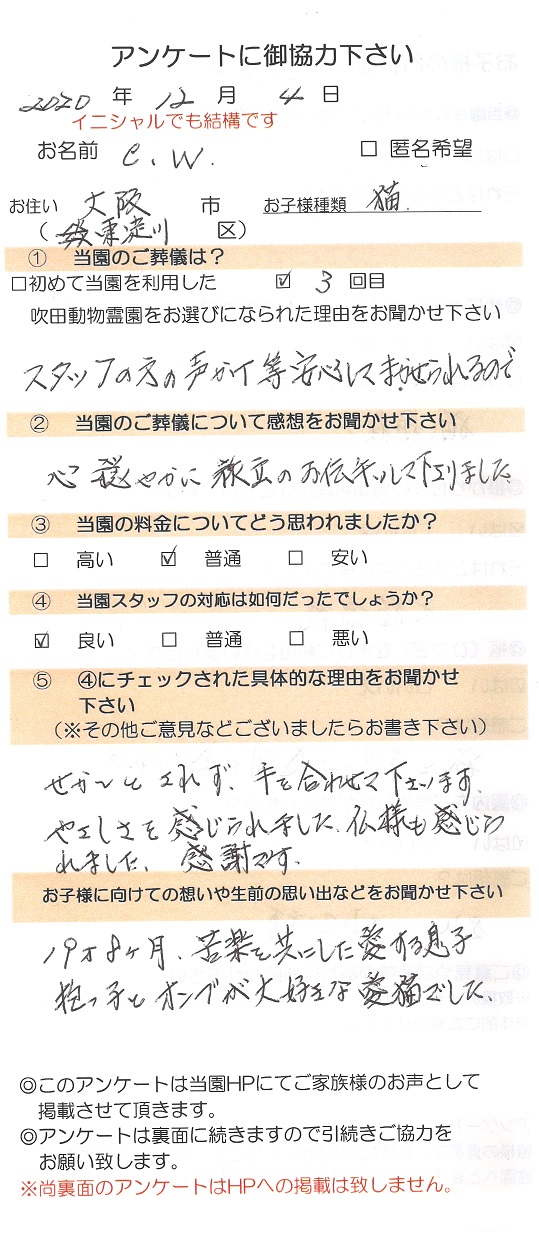 アンケートに御協力下さい
2020 年 12 月 4 日
イニシャルでも結構です
お名前 C.W. □ 匿名希望
お住い 大阪 市 お子様種類 猫.
( 東淀川 区)
① 当園のご葬儀は？
□初めて当園を利用した ☑ 3 回目
吹田動物霊園をお選びになられた理由をお聞かせ下さい
スタッフの方の声かけ等安心してまかせられるので
② 当園のご葬儀について感想をお聞かせ下さい
心穏やかに旅立のお伝えして下さりました、
③ 当園の料金についてどう思われましたか？
□ 高い ☑ 普通 □ 安い
④ 当園スタッフの対応は如何だったでしょうか？
☑ 良い □ 普通 □ 悪い
⑤ ④にチェックされた具体的な理由をお聞かせ
下さい
（※その他ご意見などございましたらお書き下さい）
せかーとされず、手を合わせて下さいます、
やさしさを感じられました、仏様も感じら
れました、感謝です.
お子様に向けての想いや生前の思い出などをお聞かせ下さい
19才8ヶ月、苦楽を共にした愛する息子
抱っ子とオンブが大好きな愛猫でした、
◎このアンケートは当園HPにてご家族様のお声として
掲載させて頂きます。
◎アンケートは裏面に続きますので引続きご協力を
お願い致します。
※尚裏面のアンケートはHPへの掲載は致しません。